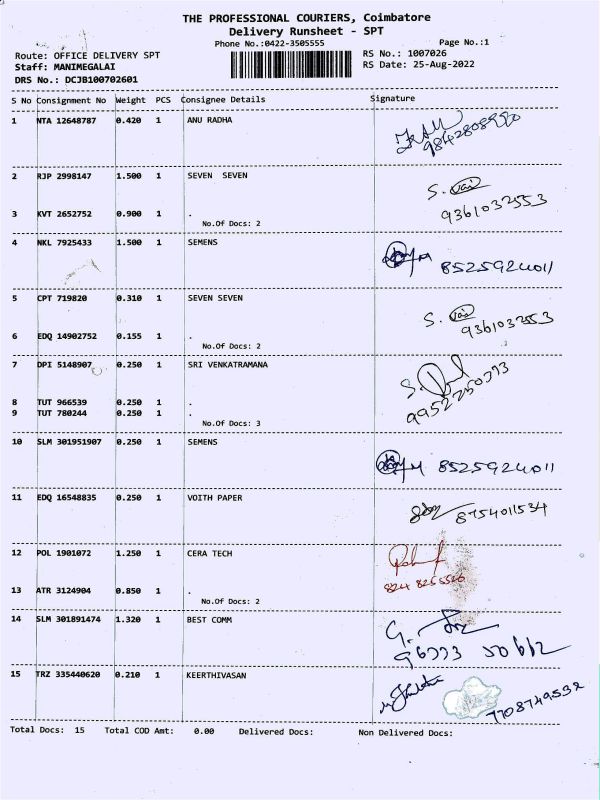 THE PROFESSIONAL COURIERS, Coimbatore
Delivery Runsheet - SPT
Phone No.:0422-3505555 Page No.:1
Route: OFFICE DELIVERY SPT RS No.: 1007026
Staff: MANIMEGALAI RS Date: 25-Aug-2022
DRS No.: DCJB100702601
S No Consignment No Weight PCS Consignee Details Signature
1 NTA 12648787 0.420 1 ANU RADHA
9842808990
2 RJP 2998147 1.500 1 SEVEN SEVEN S.
9361032553
3 KVT 2652752 0.900 1 .
No.Of Docs: 2
4 NKL 7925433 1.500 1 SEMENS
8525924011
5 CPT 719820 0.310 1 SEVEN SEVEN S.
9361032553
6 EDQ 14902752 0.155 1 .
No.Of Docs: 2
7 DPI 5148907 0.250 1 SRI VENKATRAMANA
S.
9952750773
8 TUT 966539 0.250 1 .
9 TUT 780244 0.250 1 .
No.Of Docs: 3
10 SLM 301951907 0.250 1 SEMENS
8525924011
11 EDQ 16548835 0.250 1 VOITH PAPER
8754011534
12 POL 1901072 1.250 1 CERA TECH
13 ATR 3124904 0.850 1 .
No.Of Docs: 2
14 SLM 301891474 1.320 1 BEST COMM
G.
15 TRZ 335440620 0.210 1 KEERTHIVASAN
7708749532
Total Docs: 15 Total COD Amt: 0.00 Delivered Docs: Non Delivered Docs: